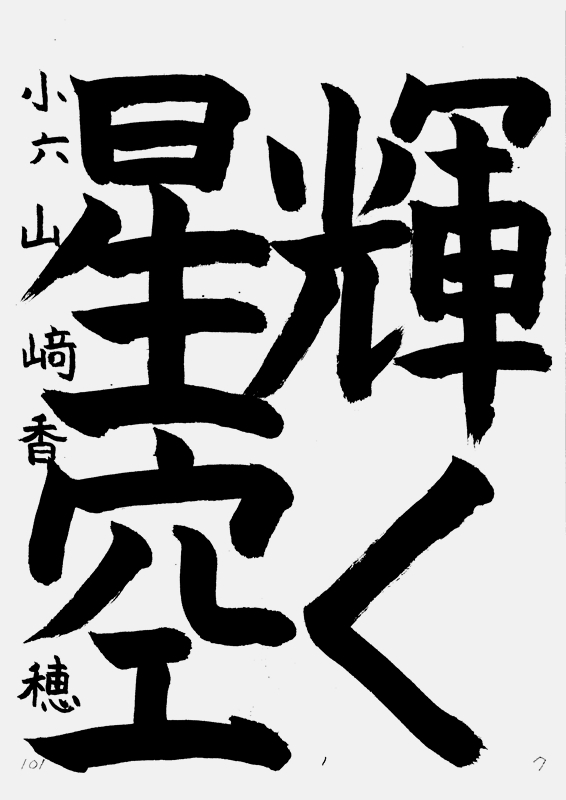 輝く
星空
小六 山﨑香穂
101
1
7